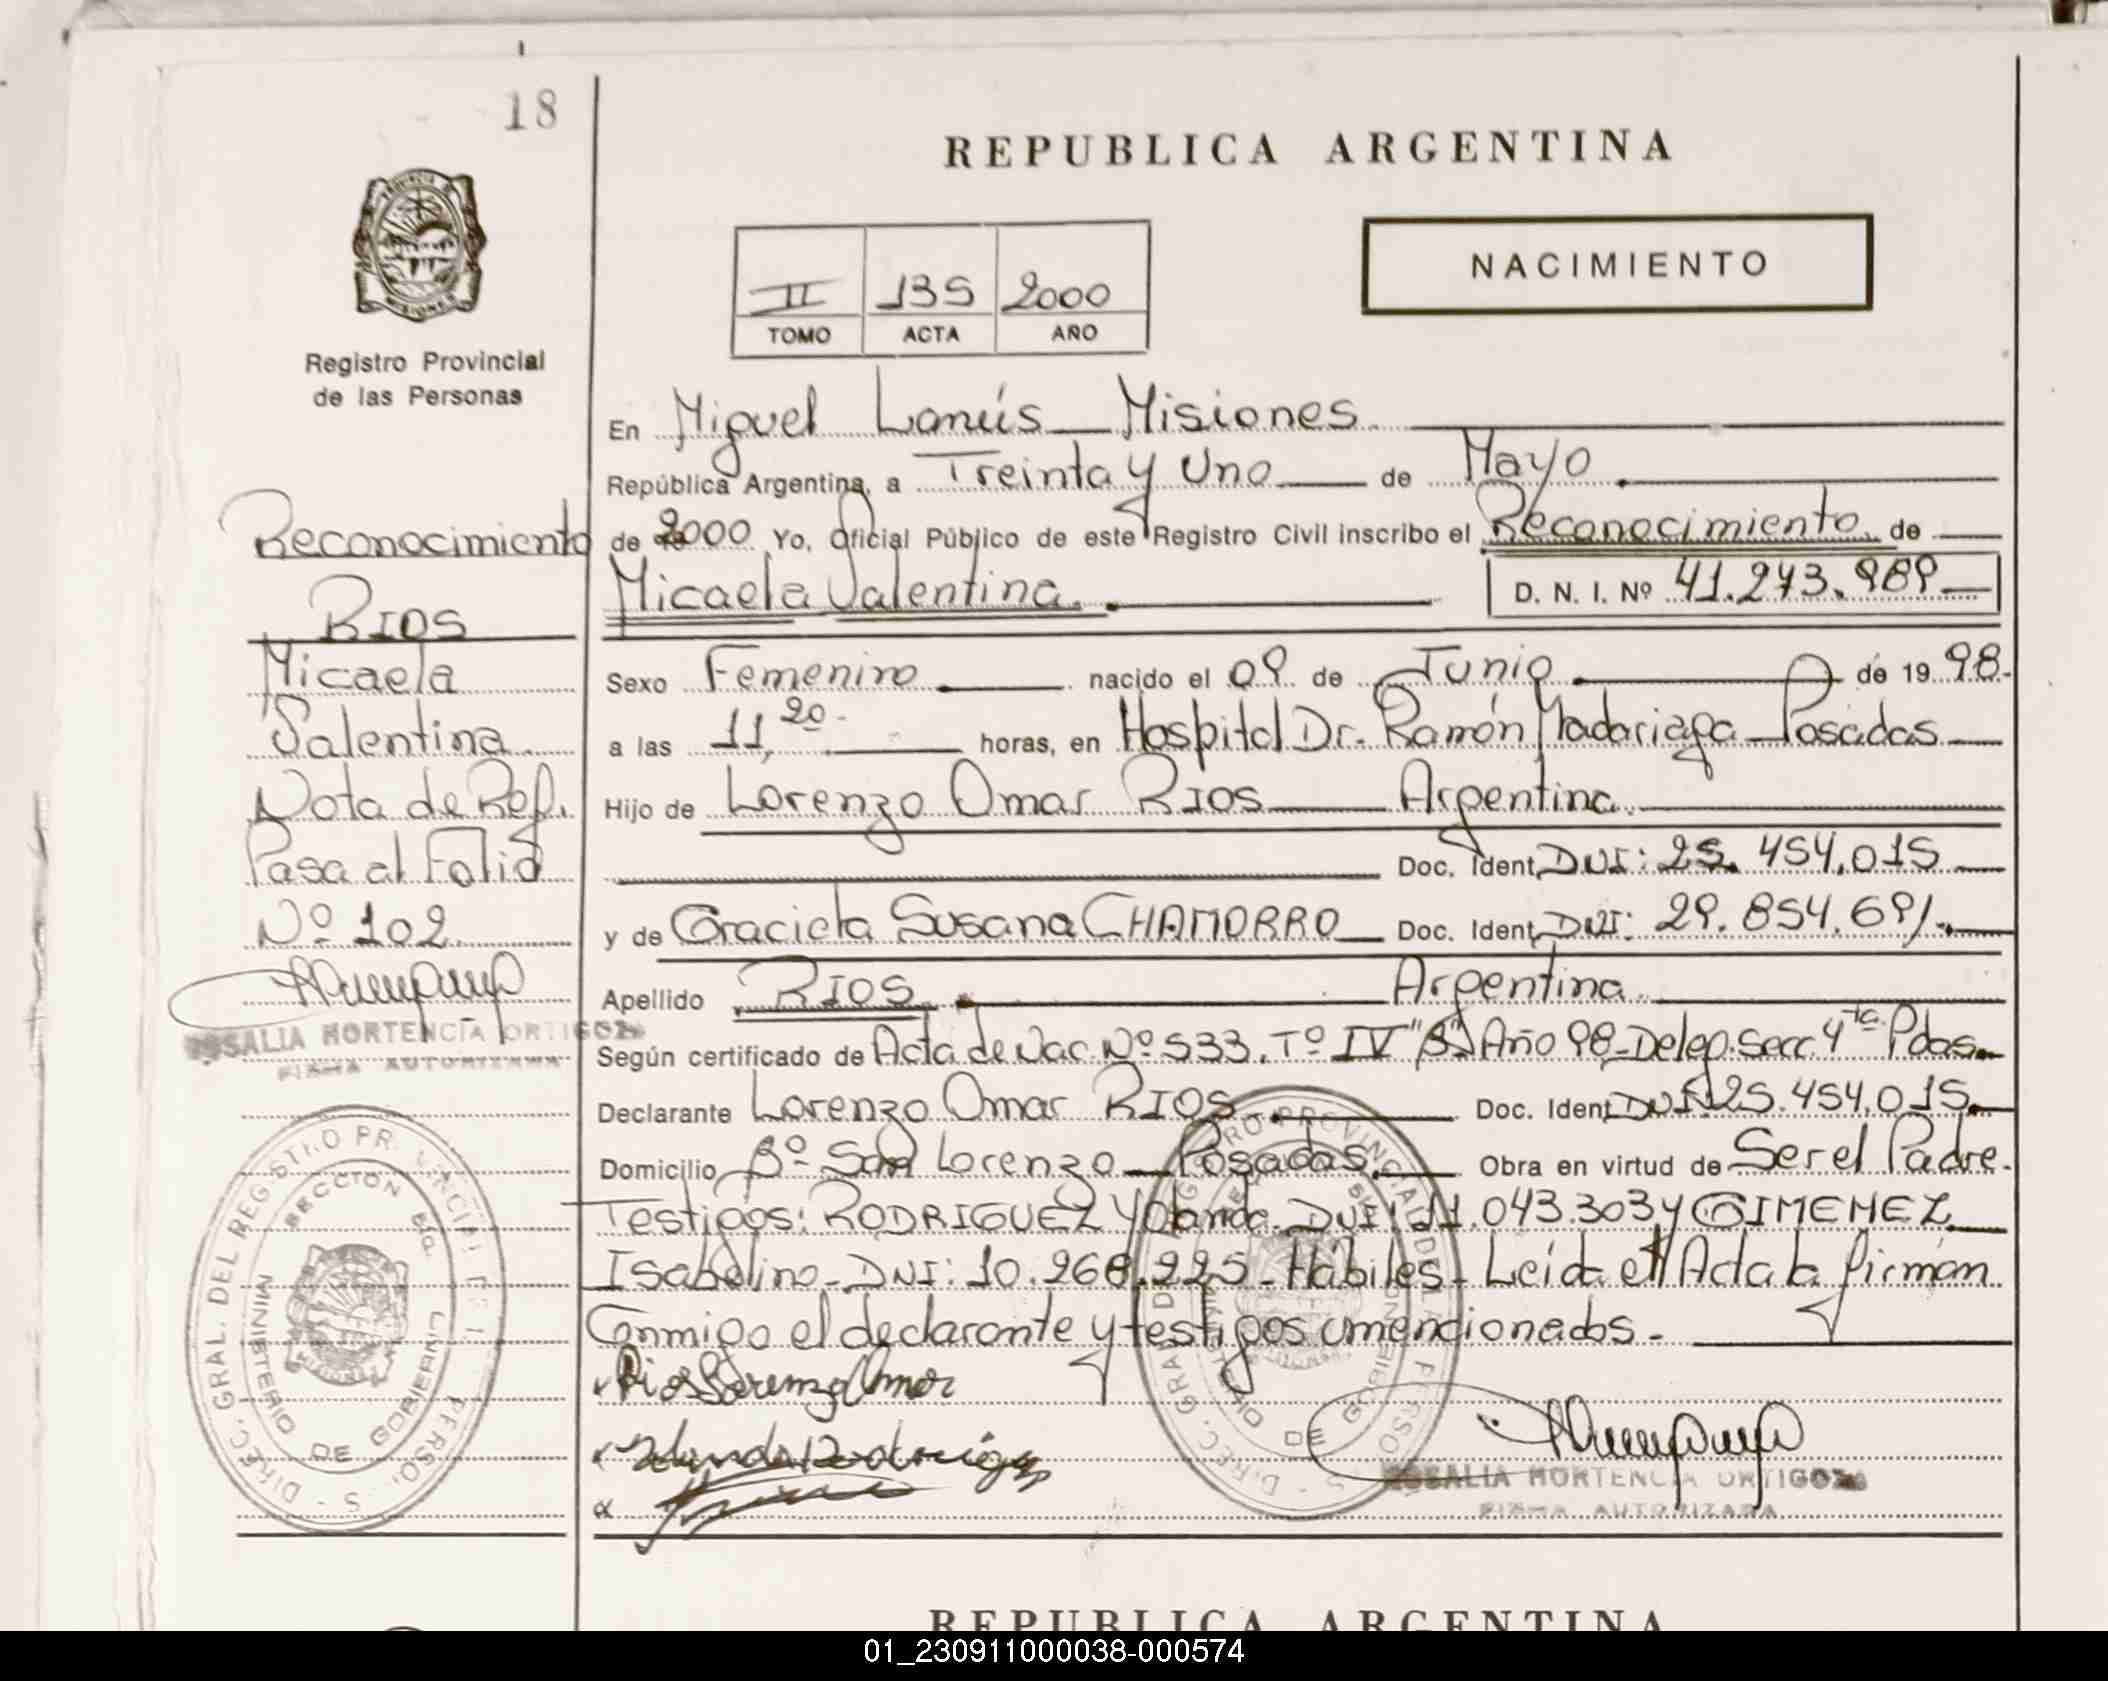 18
REPUBLICA ARGENTINA
NACIMIENTO
II 135 2000
TOMO ACTA AÑO
Registro Provincial
de las Personas
En Miguel Lanús Misiones
República Argentina, a Treinta y Uno de Mayo
de 2000 Yo, Oficial Público de este Registro Civil inscribo el Reconocimiento de
Micaela Valentina. D. N. I. Nº 41.273.989
Sexo Femenino nacido el 09 de Junio de 19 98.
a las 11,20 horas, en Hospital Dr. Ramón Madariaga Posadas
Hijo de Lorenzo Omar RIOS Argentina.
Doc. Ident. DNI: 25.454.015
y de Graciela Susana CHAMORRO Doc. Ident. DNI: 29.854.691.
Apellido RIOS. Argentina
Según certificado de Acta de Nac. Nº 533. Tº IV "B" Año 98 - Deleg. Secc. 4ta. Pdas.
Declarante Lorenzo Omar RIOS. Doc. Ident. DNI: 25.454.015.
Domicilio Bº San Lorenzo Posadas. Obra en virtud de Ser el Padre.
Testigos: RODRIGUEZ Yolanda. DNI: 11.043.303 y GIMENEZ
Isabelino - DNI: 10.268.225 - Hábiles - Leída el Acta la firman
Conmigo el declarante y testigos mencionados.
Rios Lorenzo Omar
Yolanda Rodriguez
ROSALIA HORTENCIA ORTIGOZA
FIRMA AUTORIZADA
Reconocimiento
RIOS
Micaela
Valentina
Nota de Ref.
Pasa al Folio
Nº 102
ROSALIA HORTENCIA ORTIGOZA
FIRMA AUTORIZADA
DIREC. GRAL. DEL REGISTRO PROVINCIAL DE LAS PERSONAS
MINISTERIO DE GOBIERNO
DIREC. GRAL. DEL REGISTRO PROVINCIAL DE LAS PERSONAS
MINISTERIO DE GOBIERNO
REPUBLICA ARGENTINA
01_230911000038-000574